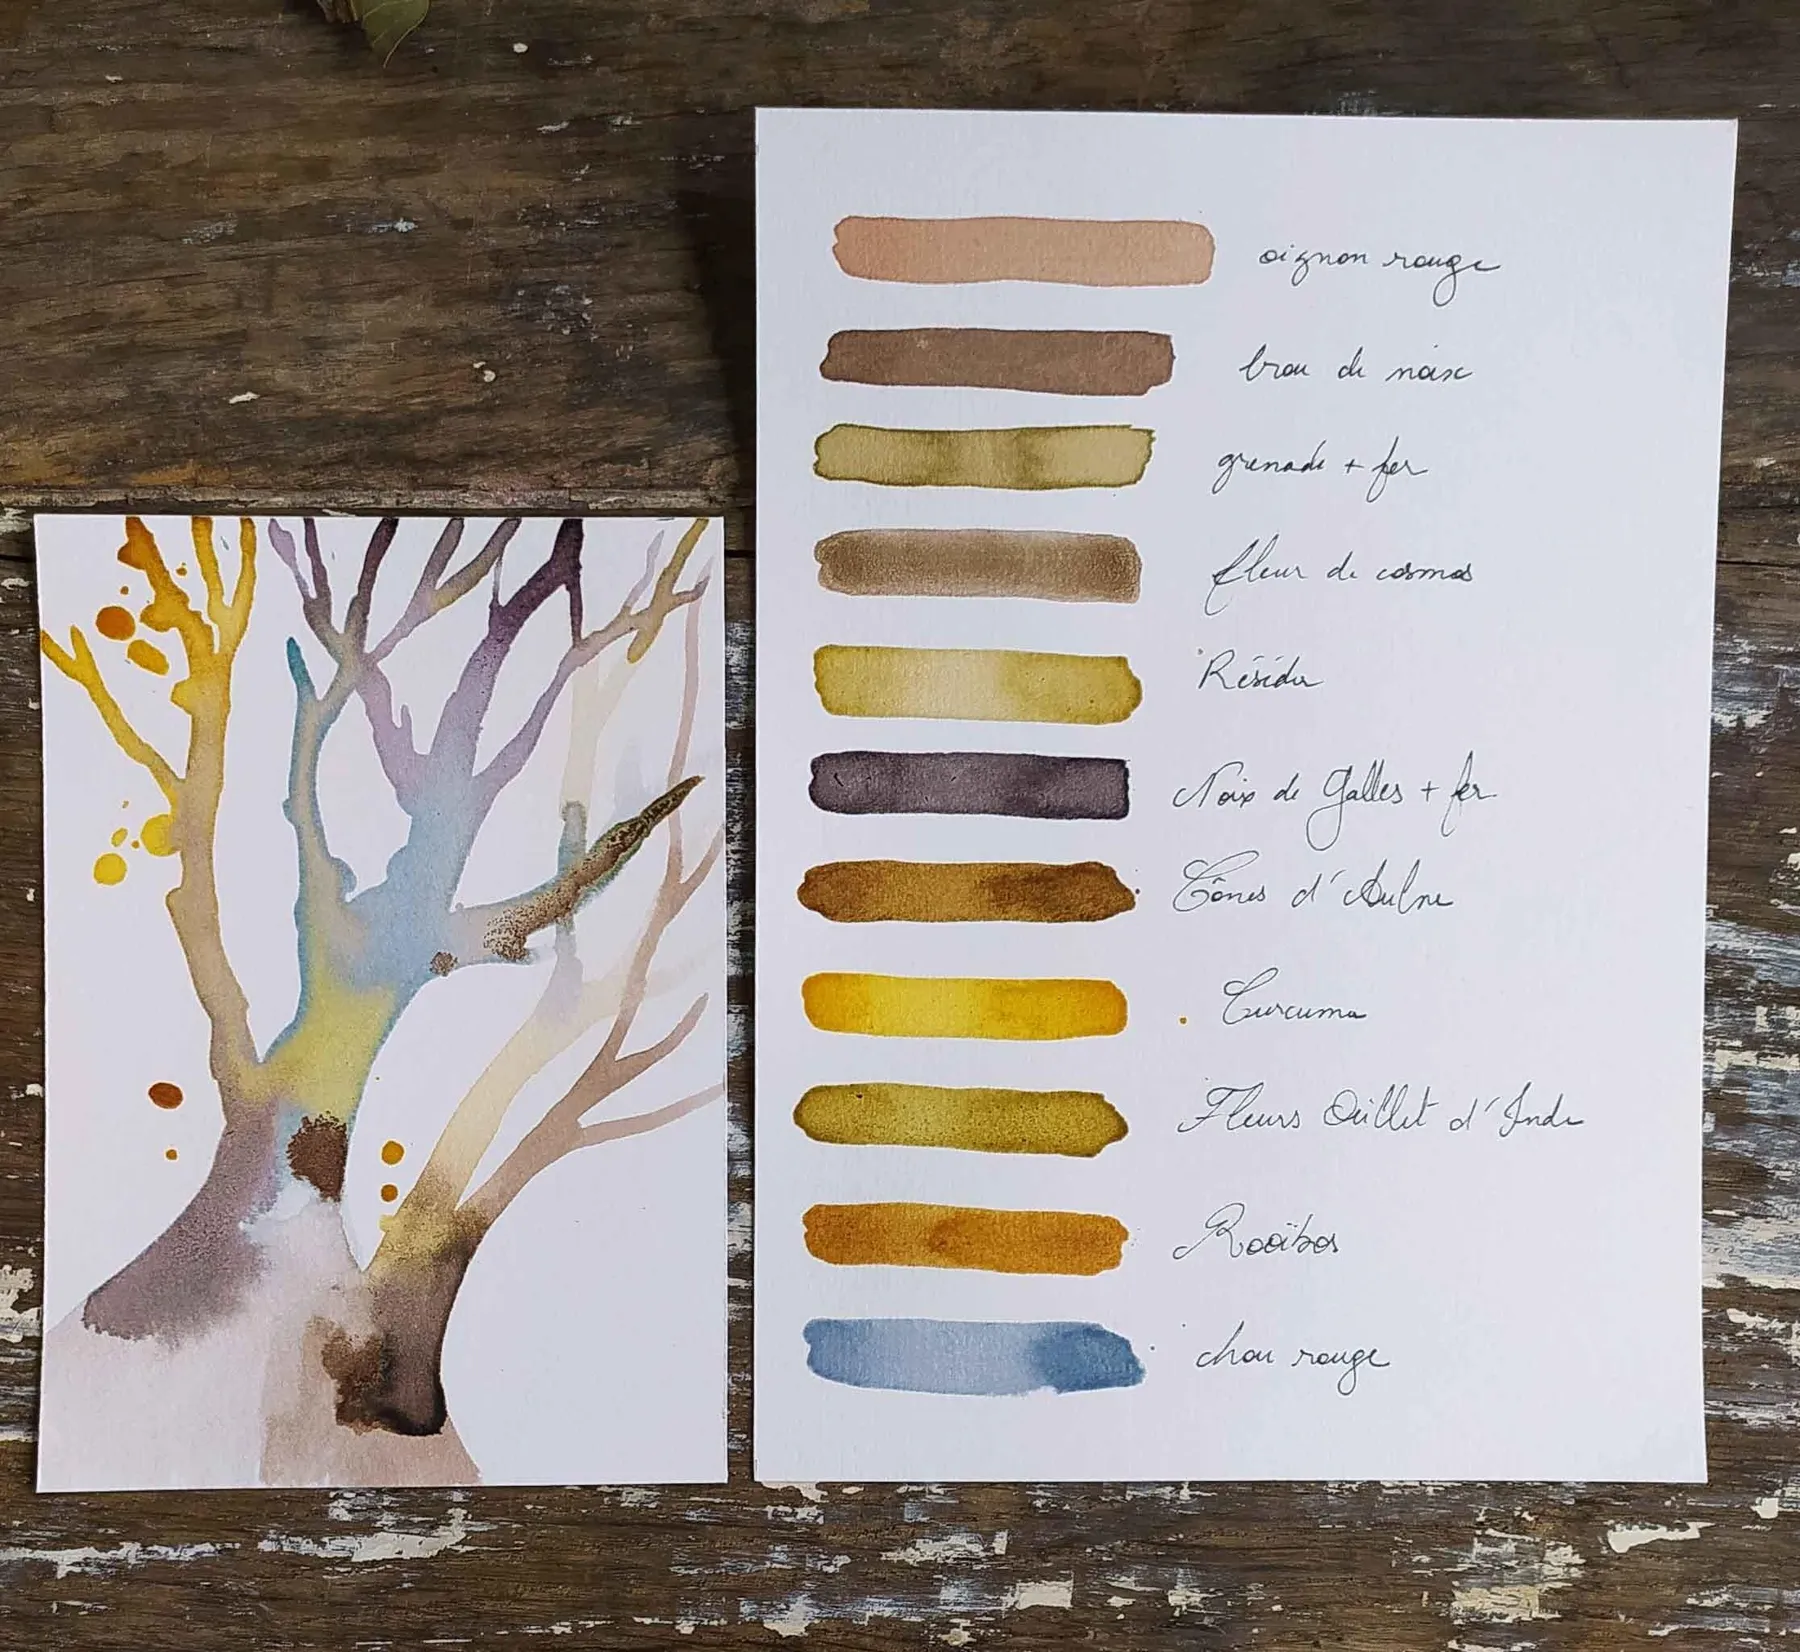 oignon rouge
brou de noix
grenade + fer
fleur de cosmos
Réséda
Noix de Galles + fer
Cônes d'Aulne
Curcuma
Fleurs Oeillet d'Inde
Rooïbos
chou rouge